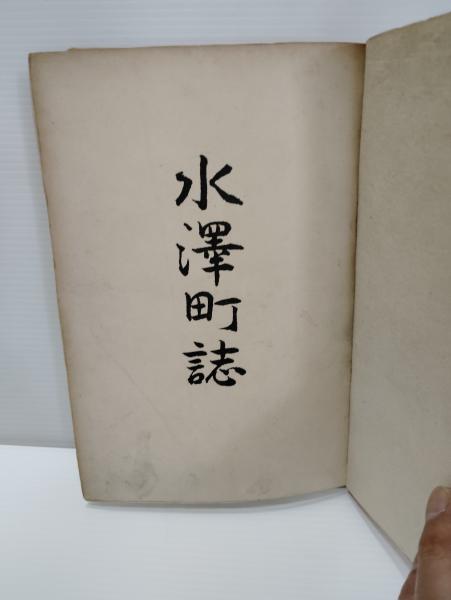 水澤町誌